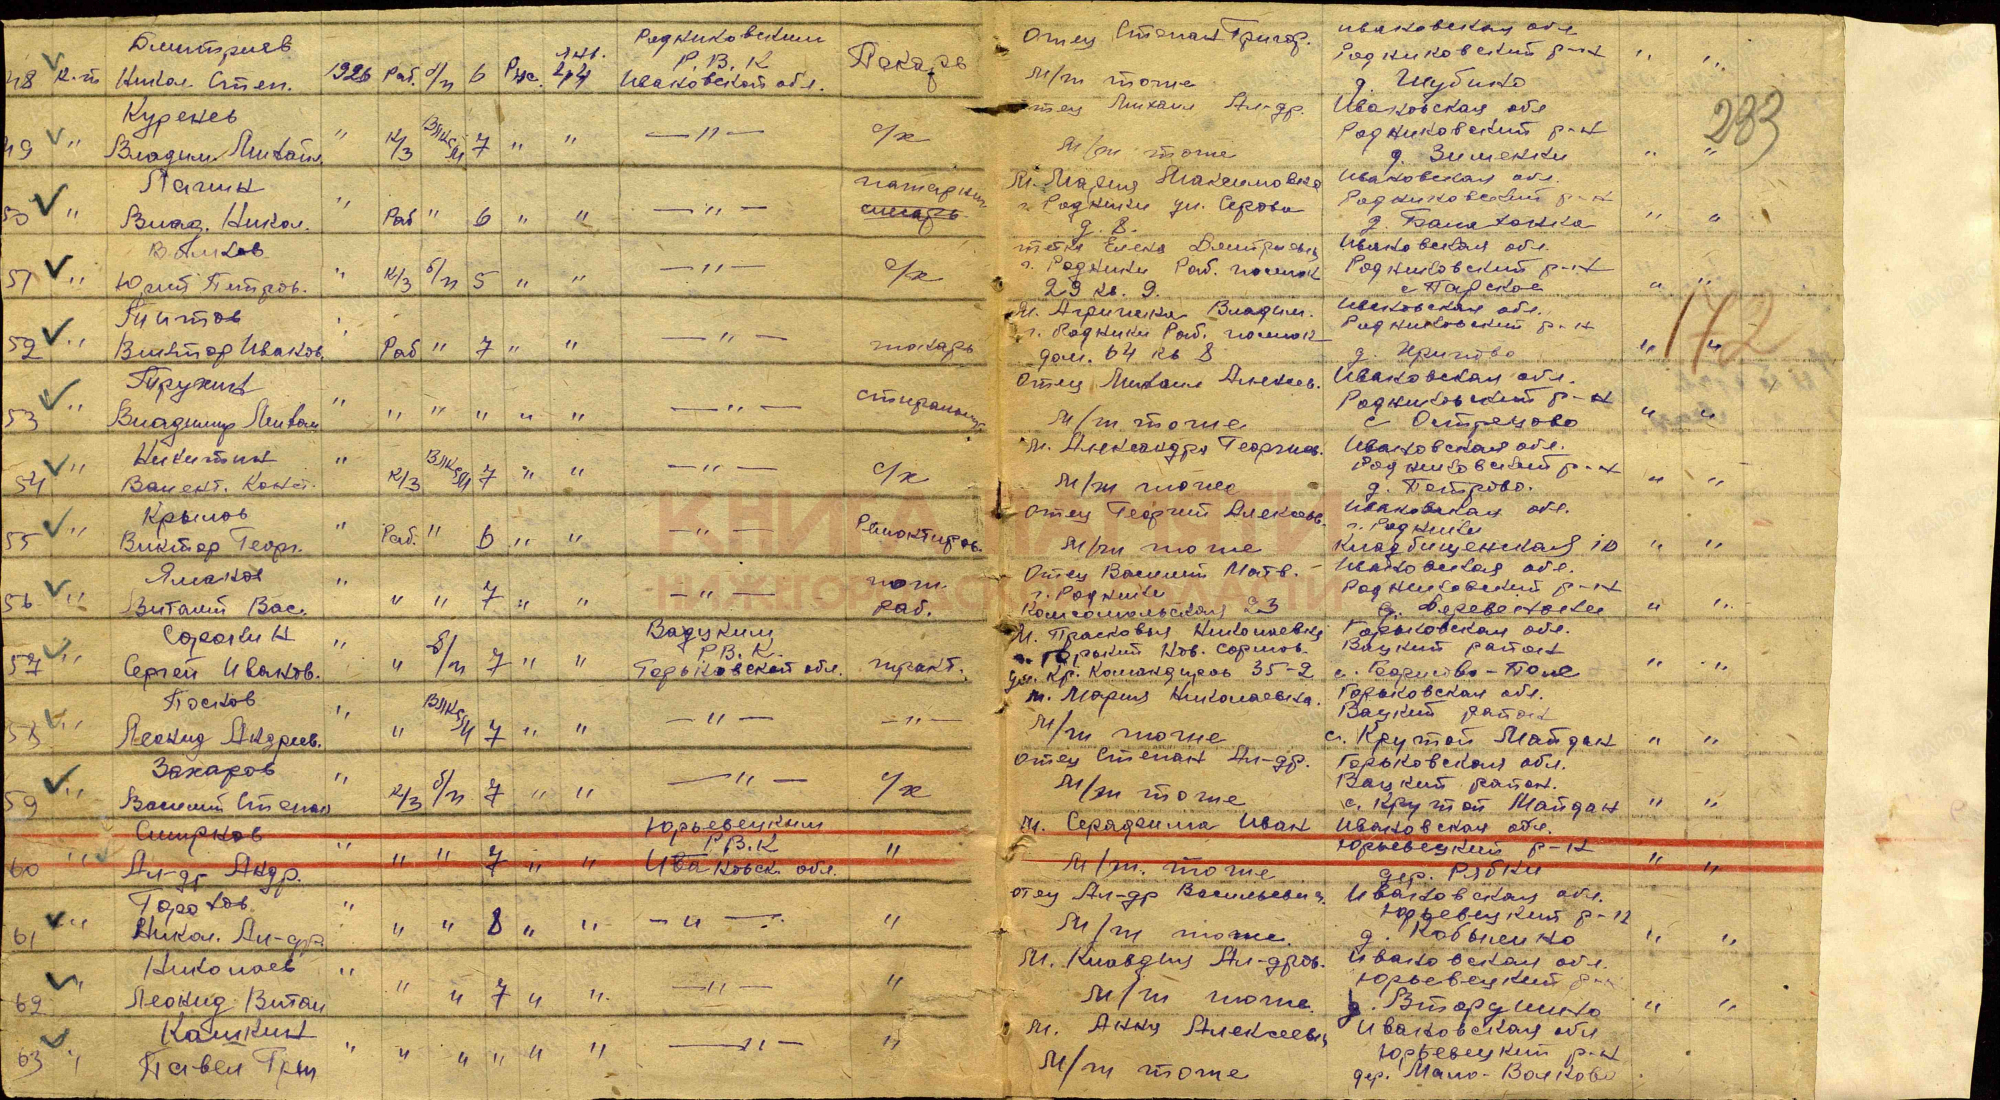 Дмитриев Родниковским Отец Степан Григор. Ивановская обл
48 к-т Никол. Степ. 1926 Раб. б/п 6 Рус. янв. 44 Р.В.К Ивановской обл. Пекарь М/ж тоже Родниковский р-н д. Шубино " "
Куренев отец Михаил Ал-др. Ивановская обл
49 " Владим. Михайл. " к/з ВЛКСМ 7 " " —"— с/х М/ж тоже Родниковский р-н д. Зименки " "
233
Лапин М. Мария Максимовна Ивановская обл.
50 " Влад. Никол. " Раб " 6 " " —"— г. Родники ул. Серова д. 8. Родниковский р-н " "
Волков тетя Елена Дмитриевн Ивановская обл.
51 " Юрий Петров. " к/з б/п 5 " " —"— с/х г. Родники Раб. поселок 29 кв. 9. Родниковский р-н с Парское " "
172
Титов М. Агрипина Владим. Ивановская обл.
52 " Виктор Иванов. " Раб " 7 " " —"— токарь г. Родники Раб. поселок дом. 64 кв 8 Родниковский р-н " "
Отец Михаил Алексеев. Ивановская обл.
53 " Владимир Михаил " " " " " " —"— М/ж тоже Родниковский р-н с Острецово " "
Никитин М. Александра Георгиев. Ивановская обл.
54 " Валент. Конст. " к/з ВЛКСМ 7 " " —"— с/х М/ж тоже Родниковский р-н д. Петрово. " "
Крылов Отец Георгий Алексеев. Ивановская обл.
55 " Виктор Георг. " Раб. " 6 " " —"— Ремонтиров. М/ж тоже г. Родники Кладбищенская 10 " "
Отец Василий Матв. Ивановская обл.
56 " Виталий Вас. " " " 7 " " —"— раб. г. Родники Комсомольская 23 Родниковский р-н " "
Сорокин Вадуким М. Прасковья Николаевна Горьковская обл.
57 " Сергей Иванов. " " б/п 7 " " Р.В.К. Горьковской обл. тракт. г. Горький Нов. Сормов. Кр. Командиров 35-2 Вацкий район с. Борисово-Поле " "
Посков М. Мария Николаевна. Горьковская обл.
58 " Леонид Андреев. " " ВЛКСМ 7 " " —"— —"— М/ж тоже Вацкий район с. Крутой Майдан " "
Захаров Отец Степан Ал-др. Горьковская обл.
59 " Василий Степан " к/з б/п 7 " " —"— с/х М/ж тоже Вацкий район. с. Крутой Майдан " "
Смирнов Юрьевецким М. Серафима Иван Ивановская обл.
60 " Ал-др Андр. " " " 7 " " Р.В.К Ивановск. обл. " М/ж. тоже Юрьевецкий р-н дер. Рябки " "
отец Ал-др Васильевич Ивановская обл.
61 " Никол. Ал-др. " " " 8 " " —"— " М/ж тоже Юрьевецкий р-н " "
Николаев М. Клавдия Ал-дров. Ивановская обл.
62 " Леонид Витал " " " 7 " " —"— " М/ж тоже. Юрьевецкий р-н " "
Кашкин М. Анна Алексеевн Ивановская обл
63 " Павел Гри " " " " " " —"— " М/ж тоже Юрьевецкий р-н дер. Мало-Волково
КНИГА ПАМЯТИ
НИЖЕГОРОДСКОЙ ОБЛАСТИ